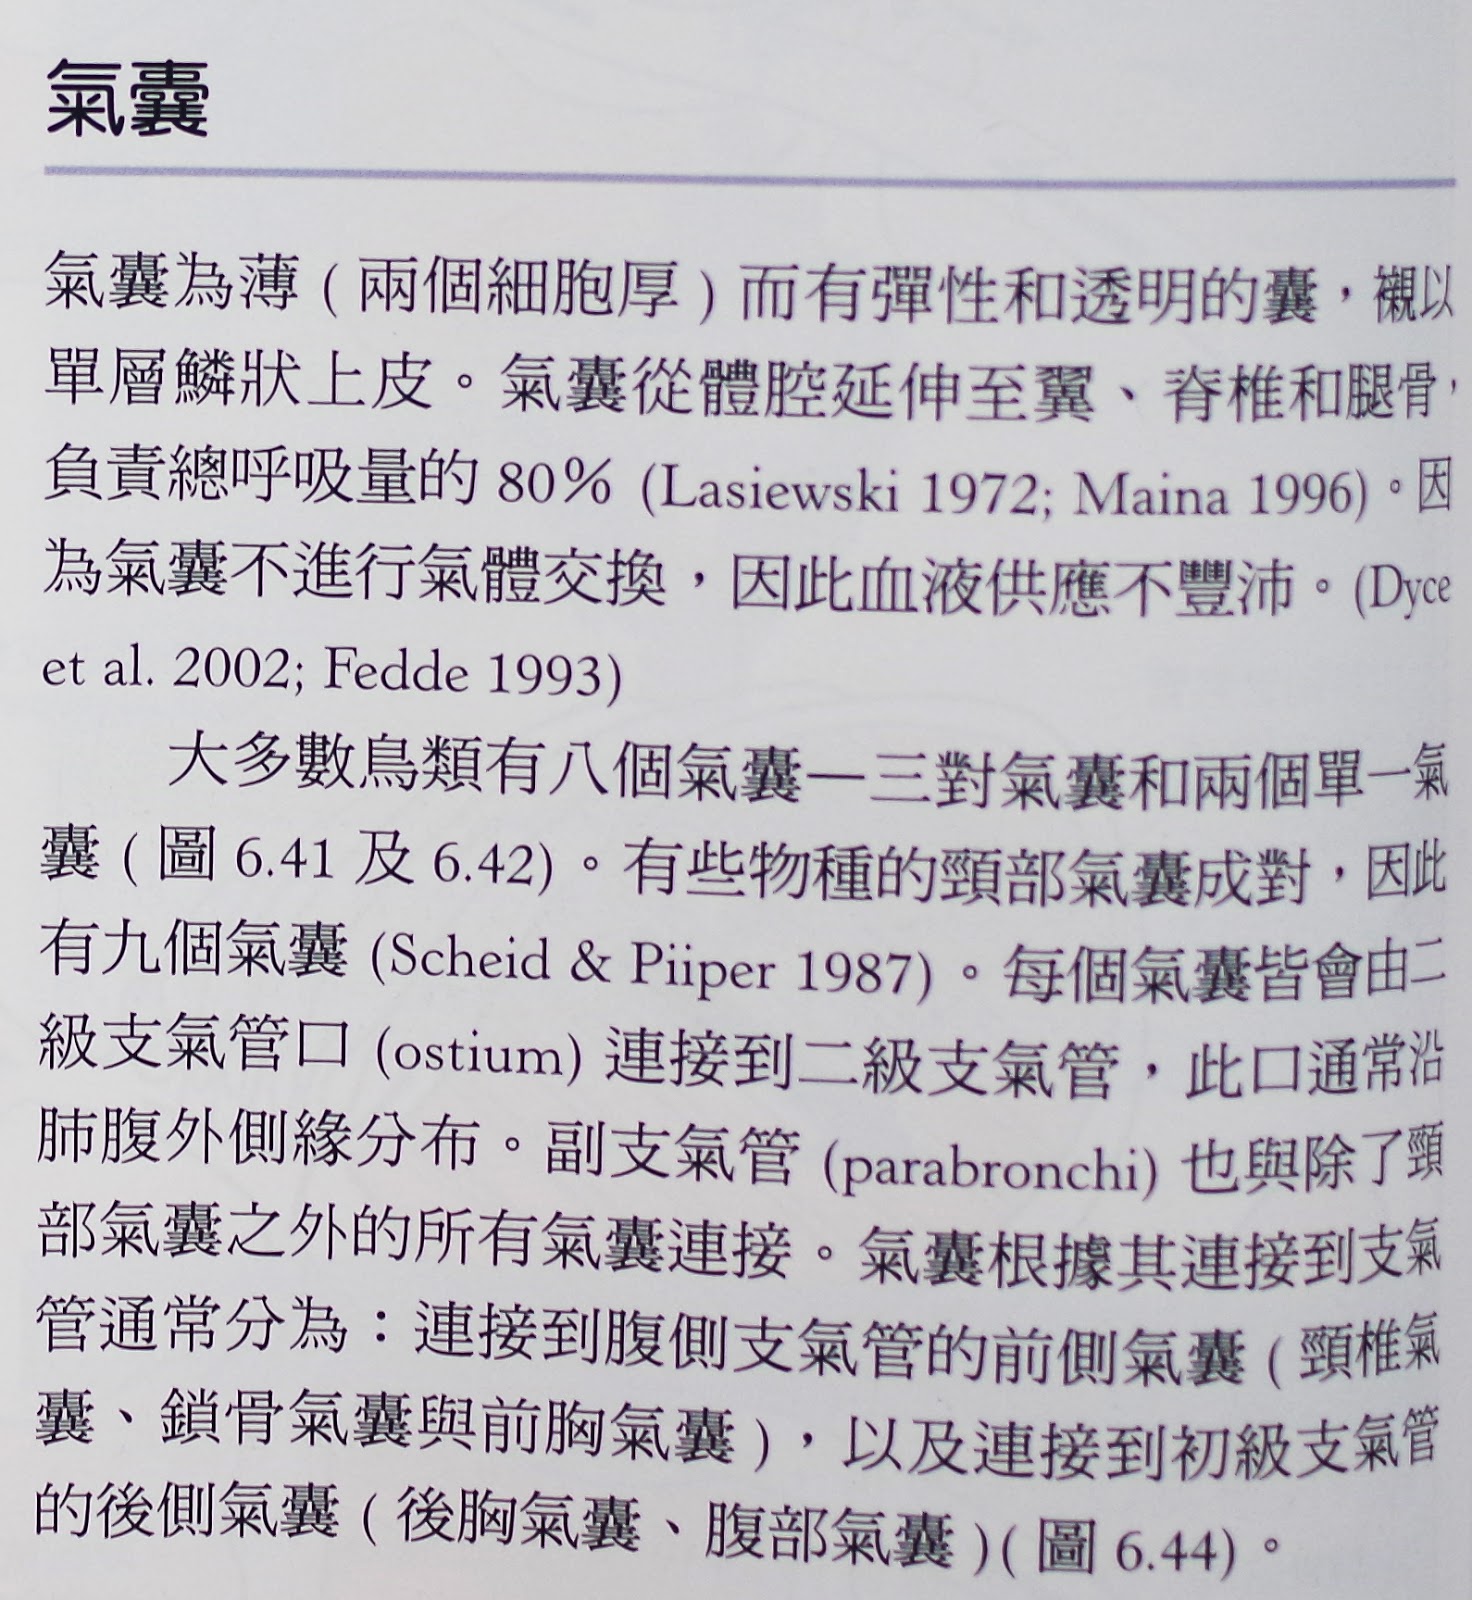 氣囊
氣囊為薄 ( 兩個細胞厚 ) 而有彈性和透明的囊，襯以
單層鱗狀上皮。氣囊從體腔延伸至翼、脊椎和腿骨，
負責總呼吸量的 80% (Lasiewski 1972; Maina 1996)。因
為氣囊不進行氣體交換，因此血液供應不豐沛。(Dyce
et al. 2002; Fedde 1993)
大多數鳥類有八個氣囊—三對氣囊和兩個單一氣
囊 ( 圖 6.41 及 6.42)。有些物種的頸部氣囊成對，因此
有九個氣囊 (Scheid & Piiper 1987)。每個氣囊皆會由二
級支氣管口 (ostium) 連接到二級支氣管，此口通常沿
肺腹外側緣分布。副支氣管 (parabronchi) 也與除了頸
部氣囊之外的所有氣囊連接。氣囊根據其連接到支氣
管通常分為：連接到腹側支氣管的前側氣囊 ( 頸椎氣
囊、鎖骨氣囊與前胸氣囊 )，以及連接到初級支氣管
的後側氣囊 ( 後胸氣囊、腹部氣囊 )( 圖 6.44)。